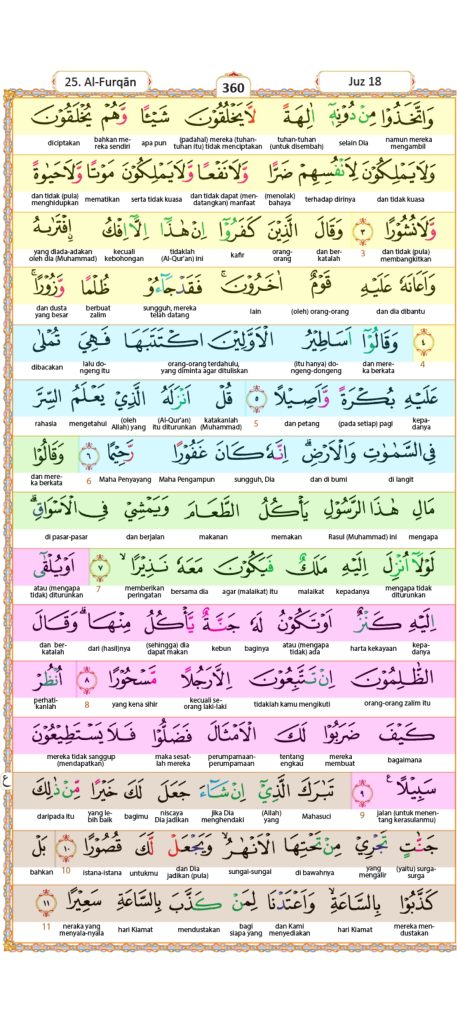 25. Al-Furqān
360
Juz 18
وَاتَّخَذُوْا مِنْ دُوْنِهٖٓ اٰلِهَةً لَّا يَخْلُقُوْنَ شَيْـًٔا وَّهُمْ يُخْلَقُوْنَ
namun mereka mengambil selain Dia tuhan-tuhan (untuk disembah) (padahal) mereka (tuhan-tuhan itu) tidak menciptakan apa pun bahkan mereka sendiri diciptakan
وَلَا يَمْلِكُوْنَ لِاَنْفُسِهِمْ ضَرًّا وَّلَا نَفْعًا وَّلَا يَمْلِكُوْنَ مَوْتًا وَّلَا حَيٰوةً
dan tidak kuasa terhadap dirinya (menolak) bahaya dan tidak dapat (mendatangkan) manfaat serta tidak kuasa mematikan dan tidak (pula) menghidupkan
وَّلَا نُشُوْرًا ٣ وَقَالَ الَّذِيْنَ كَفَرُوْٓا اِنْ هٰذَآ اِلَّآ اِفْكٌ ۨافْتَرٰىهُ
dan tidak (pula) membangkitkan 3 dan berkatalah orang-orang kafir tidaklah (Al-Qur'an) ini kecuali kebohongan yang diada-adakan oleh dia (Muhammad)
وَاَعَانَهٗ عَلَيْهِ قَوْمٌ اٰخَرُوْنَۚ فَقَدْ جَاۤءُوْ ظُلْمًا وَّزُوْرًاۚ
dan dia dibantu (oleh) orang-orang lain sungguh, mereka telah datang berbuat zalim dan dusta yang besar
٤ وَقَالُوْٓا اَسَاطِيْرُ الْاَوَّلِيْنَ اكْتَتَبَهَا فَهِيَ تُمْلٰى
4 dan mereka berkata (itu hanya) dongeng-dongeng orang-orang terdahulu, yang diminta agar dituliskan lalu dongeng itu dibacakan
عَلَيْهِ بُكْرَةً وَّاَصِيْلًا ٥ قُلْ اَنْزَلَهُ الَّذِيْ يَعْلَمُ السِّرَّ
kepadanya (pada setiap) pagi dan petang 5 katakanlah (Muhammad) (Al-Qur'an) itu diturunkan (oleh) Allah) yang mengetahui rahasia
فِى السَّمٰوٰتِ وَالْاَرْضِۗ اِنَّهٗ كَانَ غَفُوْرًا رَّحِيْمًا ٦ وَقَالُوْا
di langit dan di bumi sungguh, Dia Maha Pengampun Maha Penyayang 6 dan mereka berkata
مَالِ هٰذَا الرَّسُوْلِ يَأْكُلُ الطَّعَامَ وَيَمْشِيْ فِى الْاَسْوَاقِۗ
mengapa Rasul (Muhammad) ini memakan makanan dan berjalan di pasar-pasar
لَوْلَآ اُنْزِلَ اِلَيْهِ مَلَكٌ فَيَكُوْنَ مَعَهٗ نَذِيْرًاۙ ٧ اَوْ يُلْقٰٓى
mengapa tidak diturunkan kepadanya malaikat agar (malaikat) itu bersama dia memberikan peringatan 7 atau (mengapa tidak) diturunkan
اِلَيْهِ كَنْزٌ اَوْ تَكُوْنُ لَهٗ جَنَّةٌ يَّأْكُلُ مِنْهَاۗ وَقَالَ
kepadanya harta kekayaan atau (mengapa tidak) ada baginya kebun (sehingga) dia dapat makan dari (hasil)nya dan berkatalah
الظّٰلِمُوْنَ اِنْ تَتَّبِعُوْنَ اِلَّا رَجُلًا مَّسْحُوْرًا ٨ اُنْظُرْ
orang-orang zalim itu tidaklah kamu mengikuti kecuali seorang laki-laki yang kena sihir 8 perhatikanlah
كَيْفَ ضَرَبُوْا لَكَ الْاَمْثَالَ فَضَلُّوْا فَلَا يَسْتَطِيْعُوْنَ
bagaimana mereka membuat tentang engkau perumpamaan-perumpamaan maka sesatlah mereka mereka tidak sanggup (mendapatkan)
سَبِيْلًا ࣖ ٩ تَبٰرَكَ الَّذِيْٓ اِنْ شَاۤءَ جَعَلَ لَكَ خَيْرًا مِّنْ ذٰلِكَ
ع
jalan (untuk menentang kerasulanmu) 9 Mahasuci (Allah) yang jika Dia menghendaki niscaya Dia jadikan bagimu yang lebih baik daripada itu
جَنّٰتٍ تَجْرِيْ مِنْ تَحْتِهَا الْاَنْهٰرُۙ وَيَجْعَلْ لَّكَ قُصُوْرًا ١٠ بَلْ
(yaitu) surga-surga yang mengalir di bawahnya sungai-sungai dan Dia jadikan (pula) untukmu istana-istana 10 bahkan
كَذَّبُوْا بِالسَّاعَةِۙ وَاَعْتَدْنَا لِمَنْ كَذَّبَ بِالسَّاعَةِ سَعِيْرًا ١١
mereka mendustakan hari Kiamat dan Kami menyediakan bagi siapa yang mendustakan hari Kiamat neraka yang menyala-nyala 11